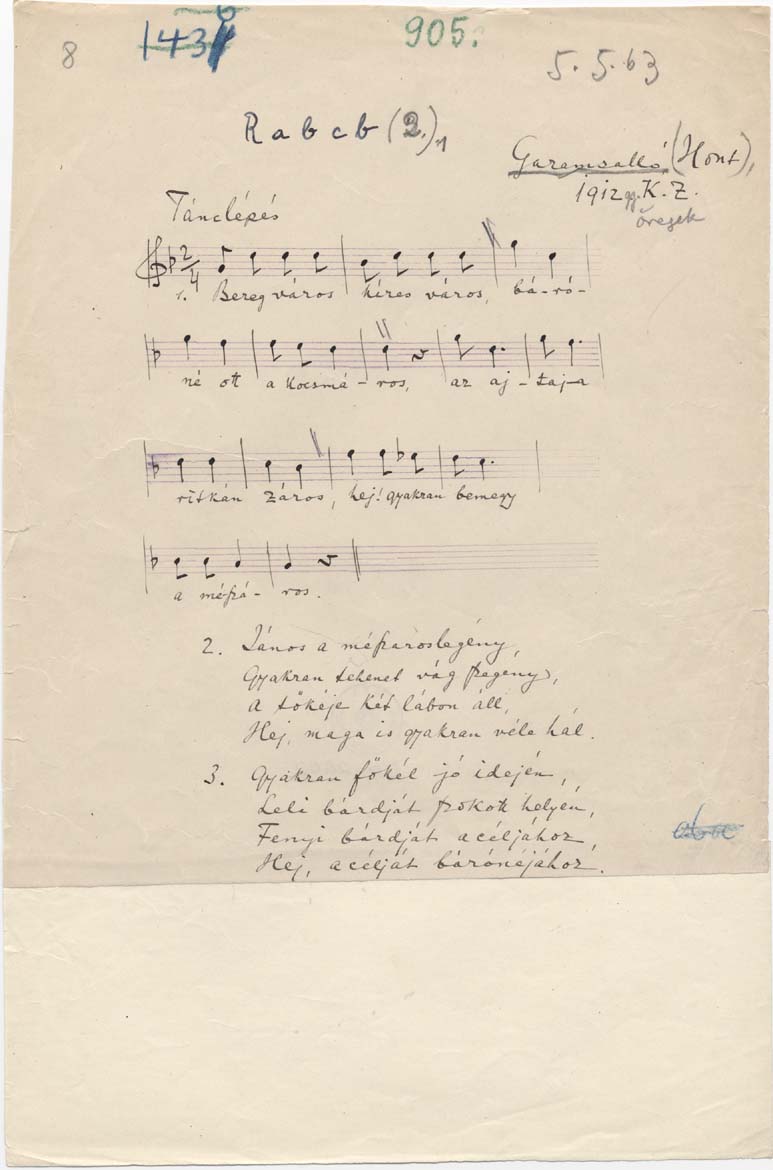 8
143
905.
5. 5. 63
R a b c b (2.)
Garamsalló, (Hont),
1912 gy. K. Z.
öregek
Tánclépés
2/4
1. Bereg város híres város, bá-ró-
né ott a kocsmá-ros, az aj-taj-a
ritkán záros, hej! gyakran bemegy
a mészá-ros.
2. János a mészároslegény,
Gyakran tehenet vág szegény,
a tőkéje két lábon áll,
Hej, maga is gyakran véle hál.
3. Gyakran főkél jó idején,
Leli bárdját szokott helyén,
Fenyi bárdját acéljához,
Hej, acélját bárónéjához.